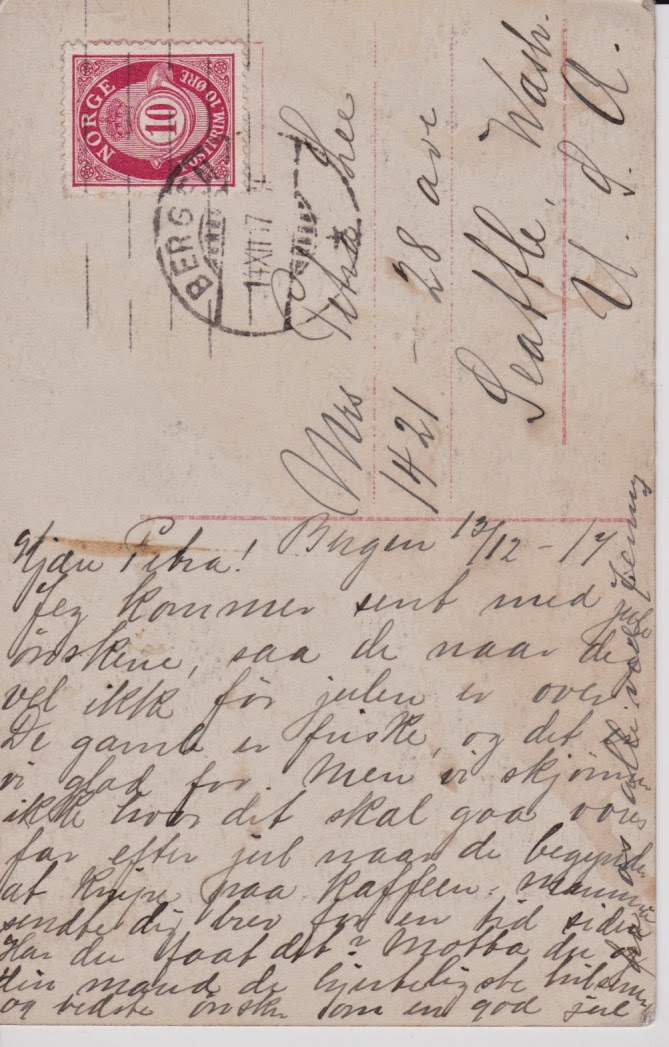 NORGE
10
POSTFRIM. 10 ØRE
BERGEN
14 XII 17
Mrs Petra Lee
1421 - 28 ave
Seattle, Wash.
U. S. A.
Bergen 13/12 - 17
Kjære Petra!
Jeg kommer sent med jule
ønskene, saa de naar de
vel ikke før julen er over
De gamle er friske, og det er
vi glad for. Men vi skjønner
ikke hvor dit skal gaa vores
far efter jul naar de begynder
at knipe paa kaffeen. Mamma
sendte dig brev for en tid siden
Har du faat det? Motta du og
din mand de hjerteligste hilsener
og bedste ønsker om en god jul
fra os alle ved Jenny